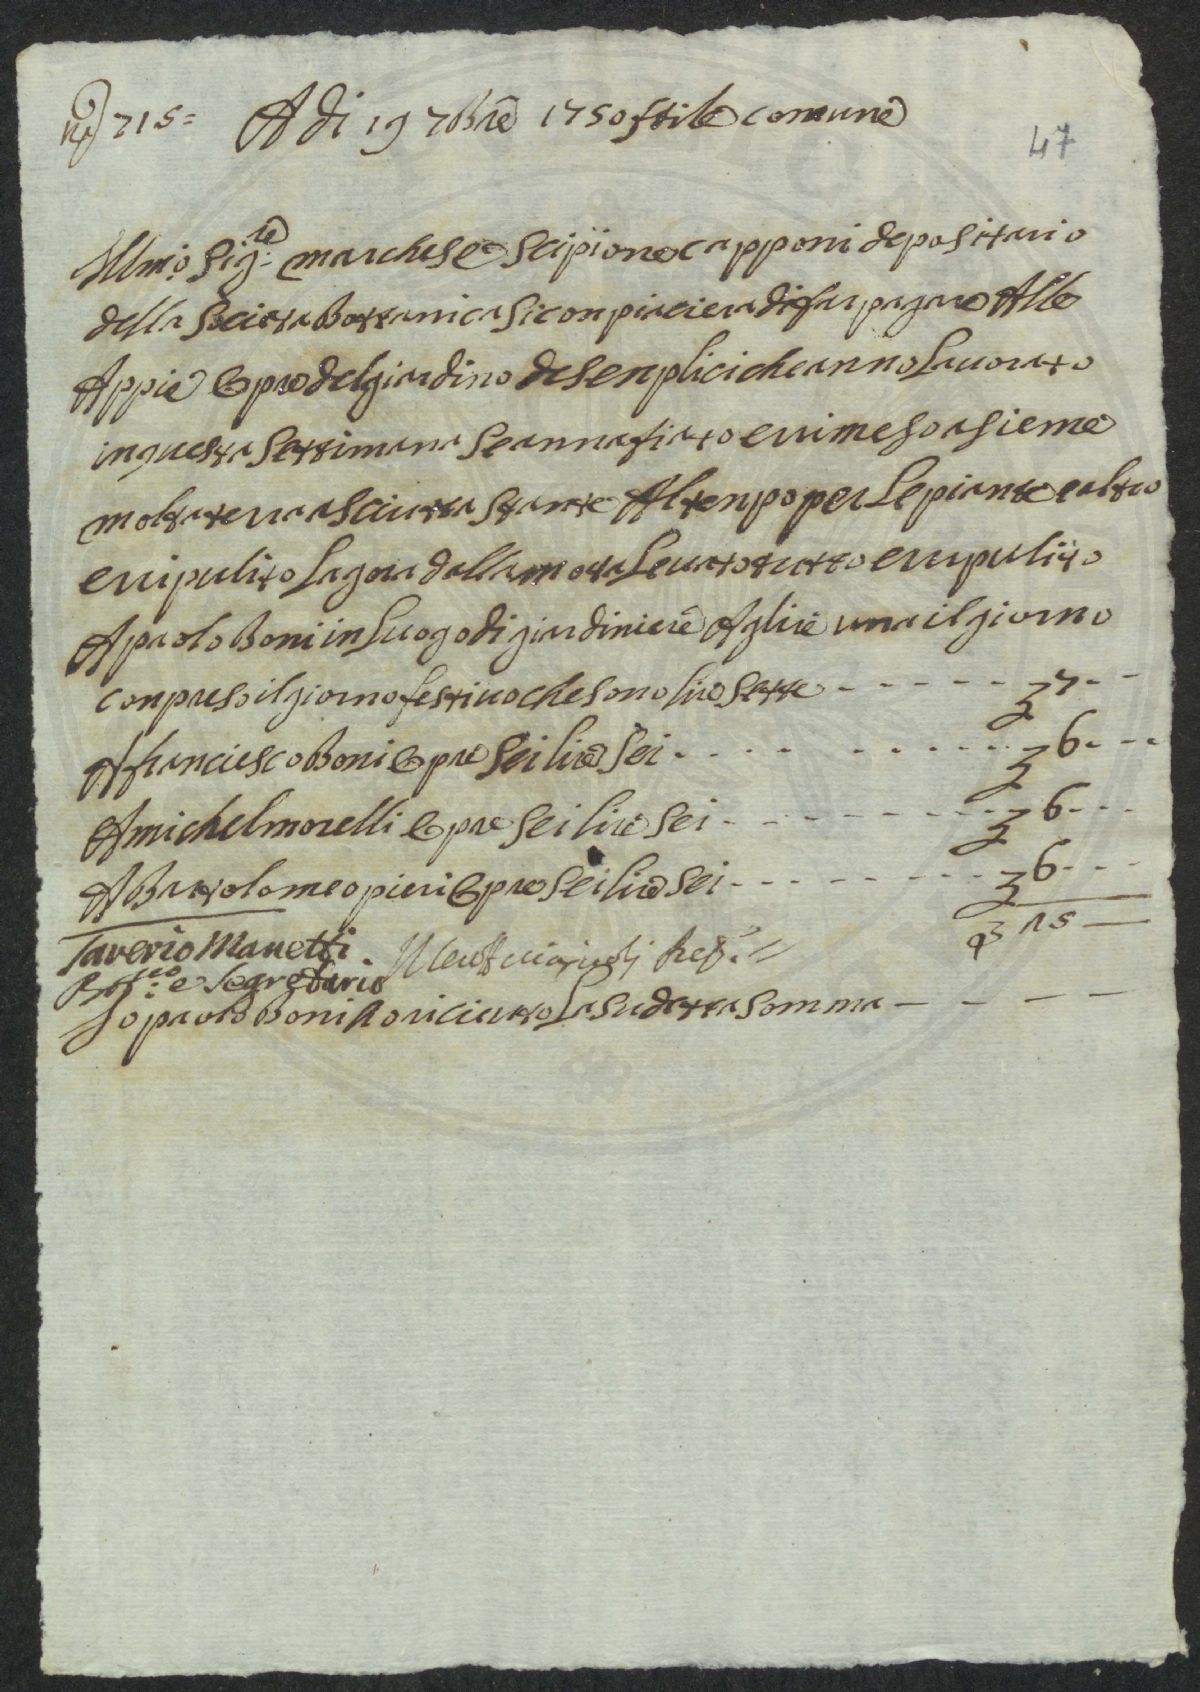 N.º 715= Adi 19 7Bre 1750 stile comune
47
Illmo Sig:re marchese Scipione capponi depositario
della Societa Bottanica Si conpiaciera di far pagare Alle
Appie Opre del giardino de Senplici che anno Lavorato
in questa Settimana Se annafiato e rimeso asieme
molta terra asciutta stante Al tenpo per Le piante e altro
e ripulito La gora dalla mota Levato tutto e ripulito
A paolo Boni in Luogo di giardiniere A glire una il giorno
conpreso il giorno festivo che sono lire Sette - - - - - - £ 7 - -
A franciesco Boni Opre Sei lire Sei - - - - - - - - £ 6 - - -
A michel morelli Opre Sei lire Sei - - - - - - - - £ 6 - - -
A Bartolomeo pieri Opre Sei lire Sei - - - - - - - - £ 6 - - -
Saverio Manetti £ 25 —
Pro Segretario
Io paolo Boni ho riciuto La sudetta Somma — — — — —